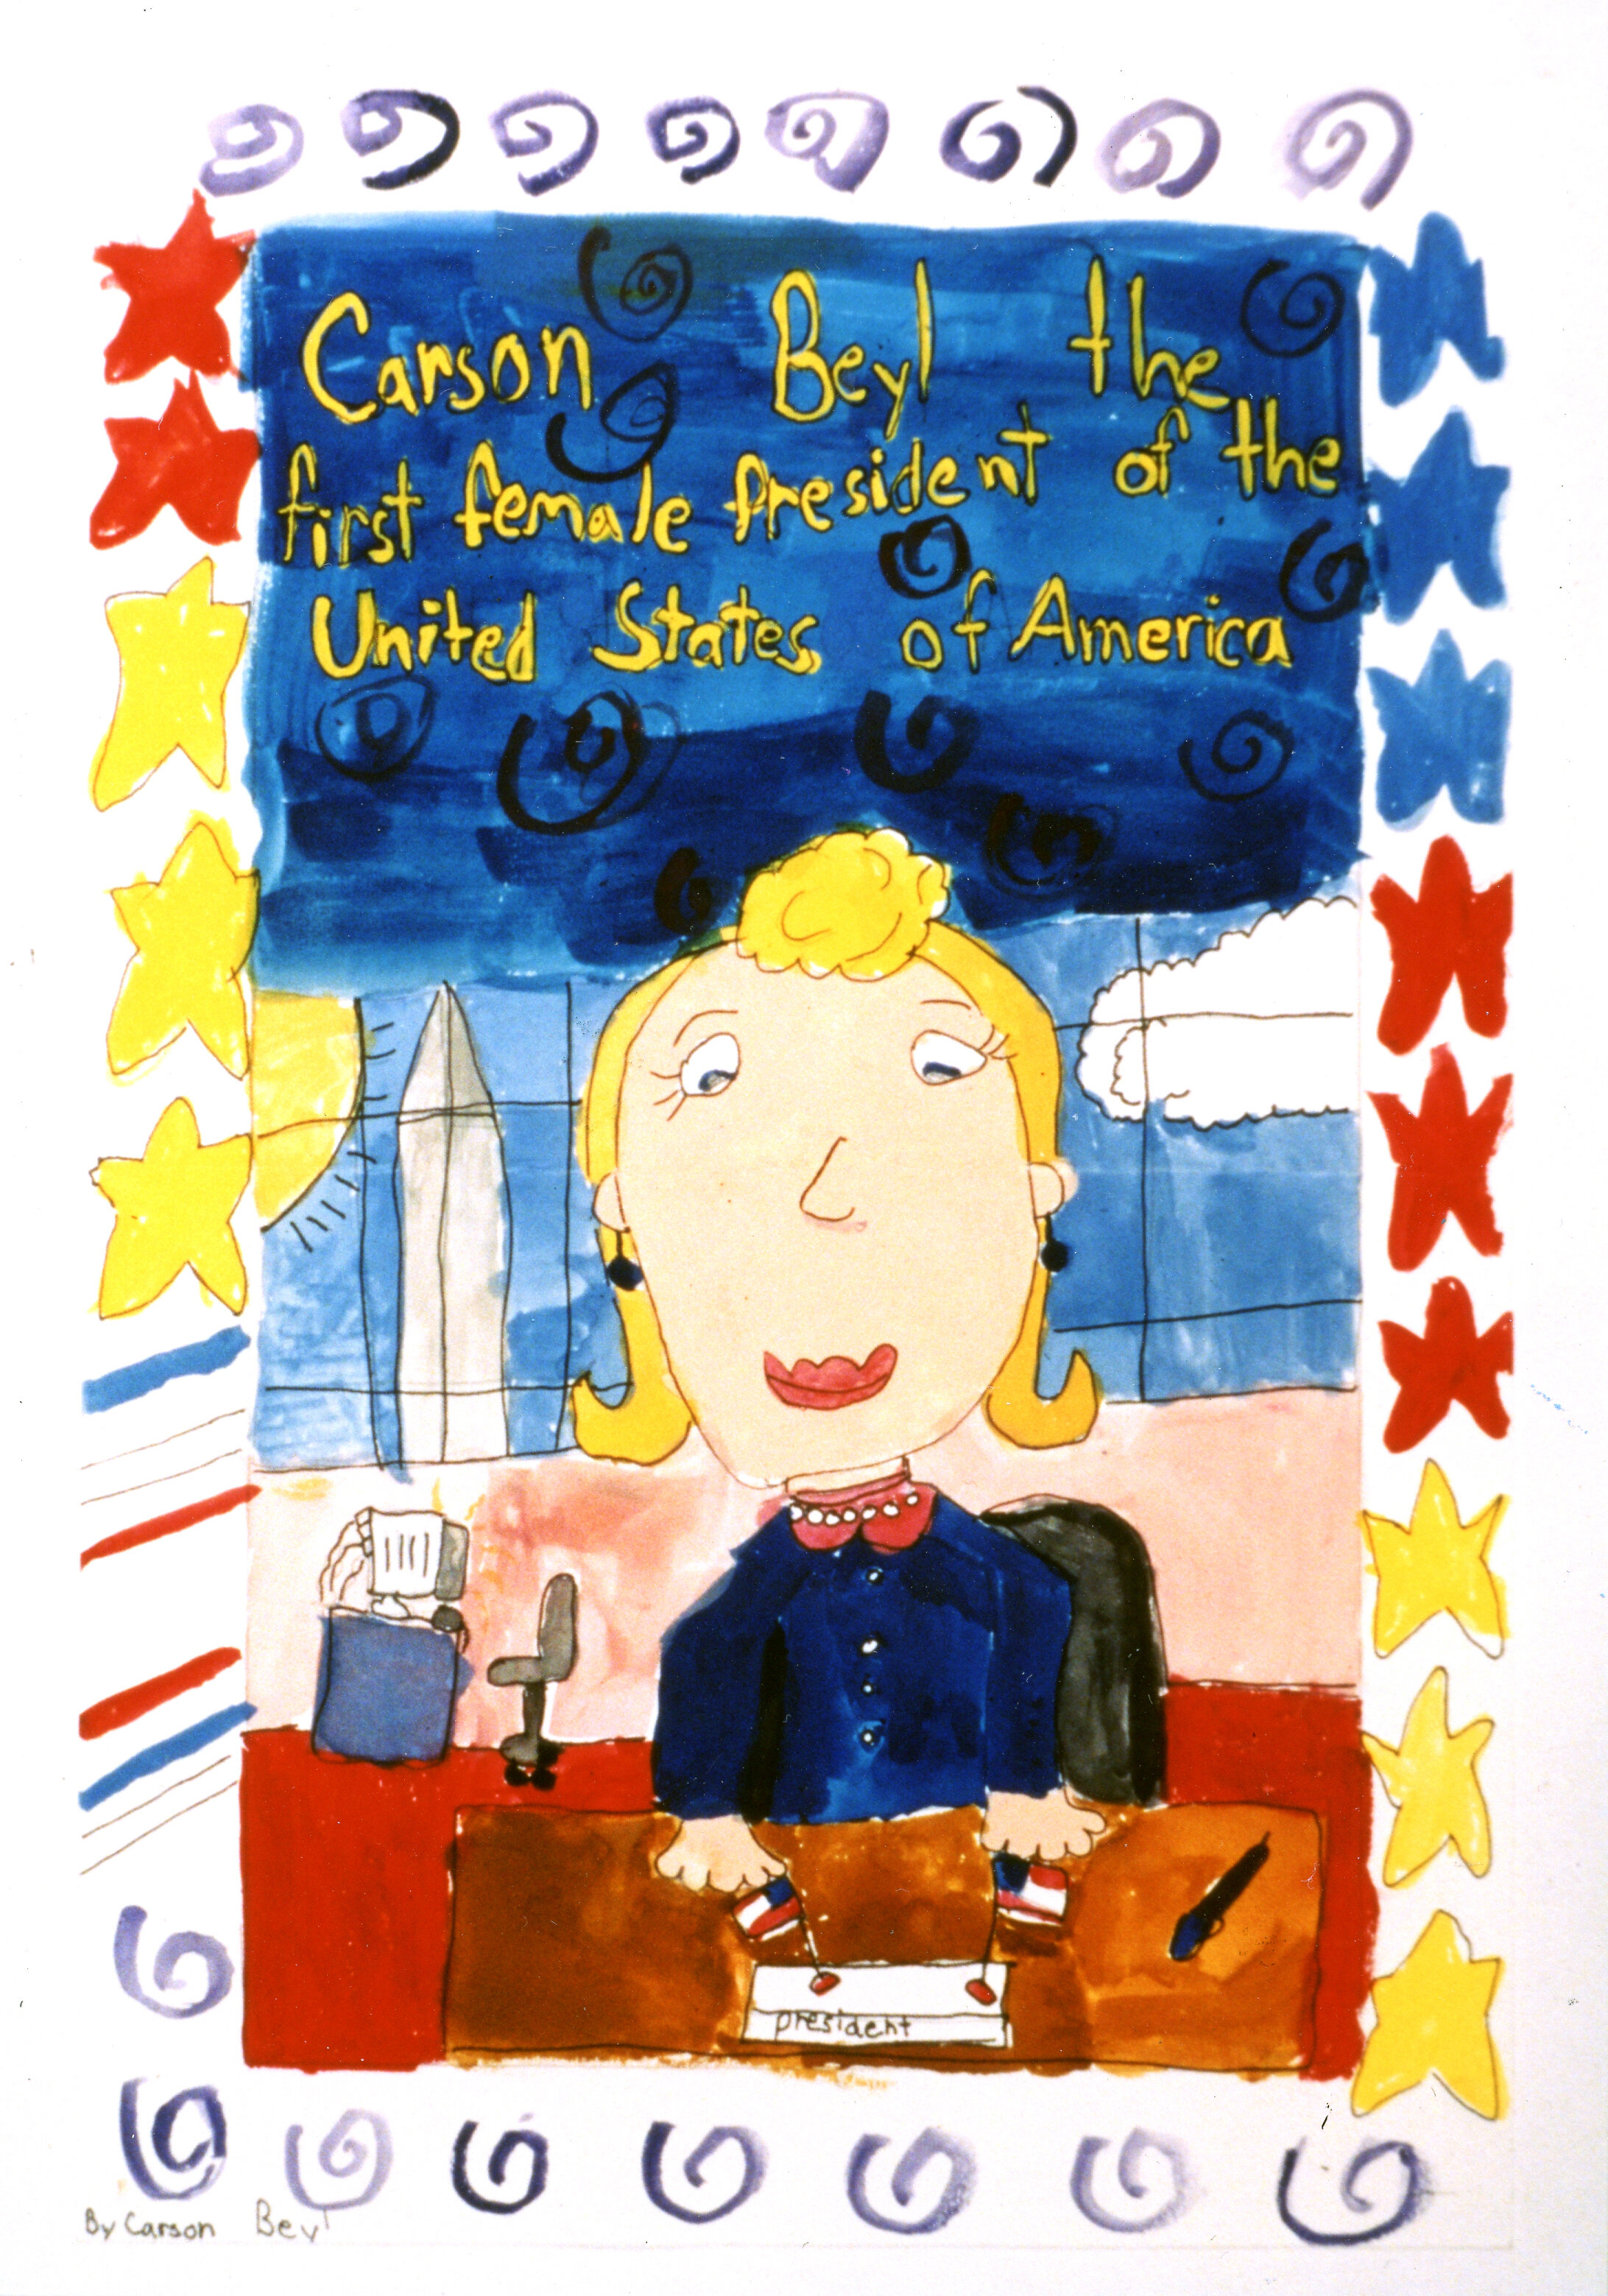 Carson Beyl the
first female President of the
United States of America
president
By Carson Beyl